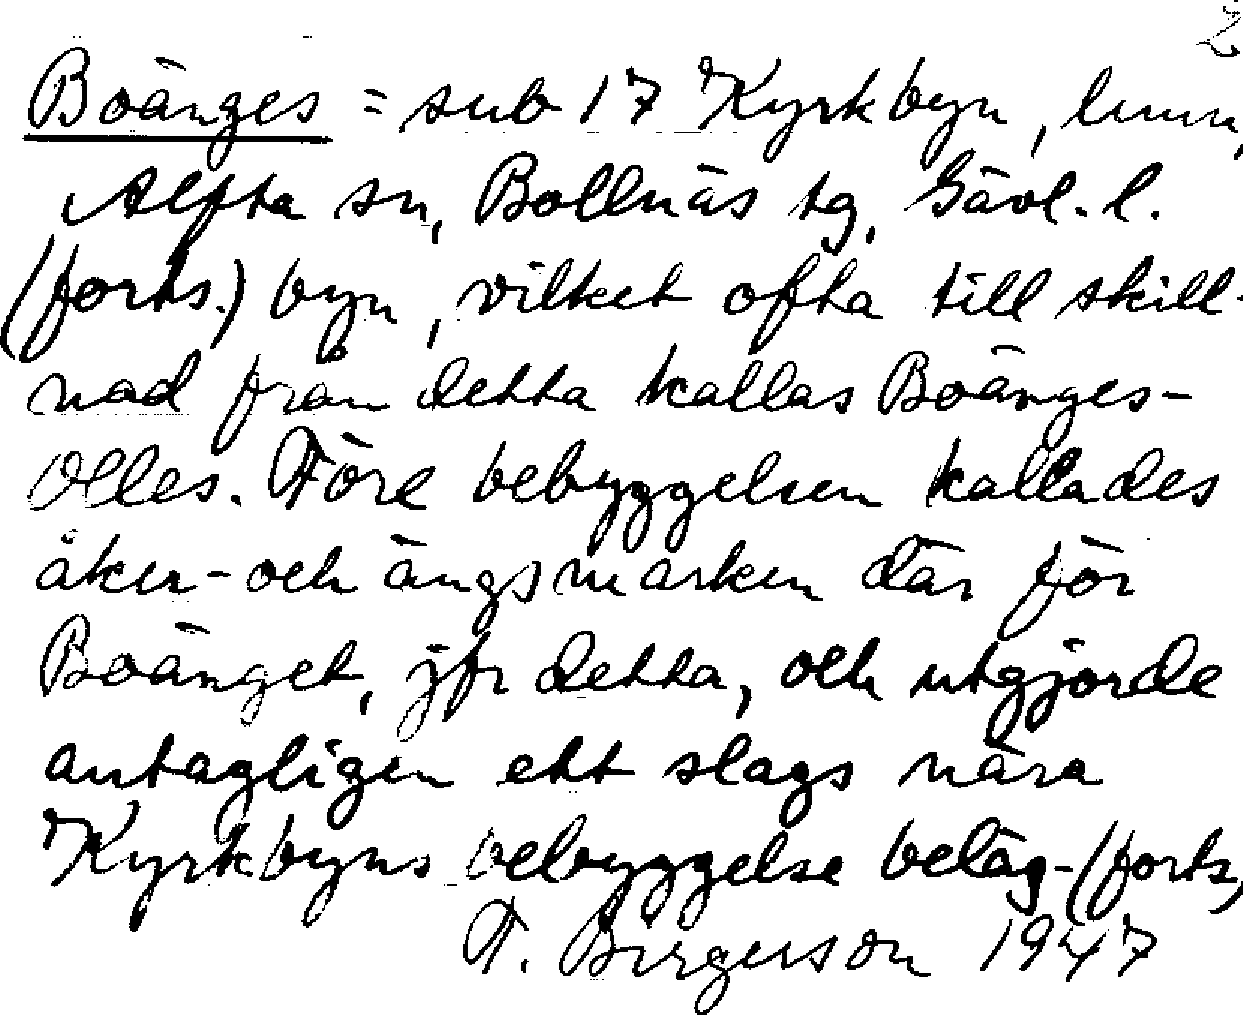 2
Boänges = sub 17 Kyrkbyn,
Alfta sn, Bollnäs tg, Gävl. l.
(forts.) byn, vilket ofta till skill-
nad från detta kallas Boänges-
Olles. Före bebyggelsen kallades
åker- och ängsmarken där för
Boänget, jfr detta, och utgjorde
antagligen ett slags nära
Kyrkbyns bebyggelse beläg-(forts.)
F. Birgerson 1947